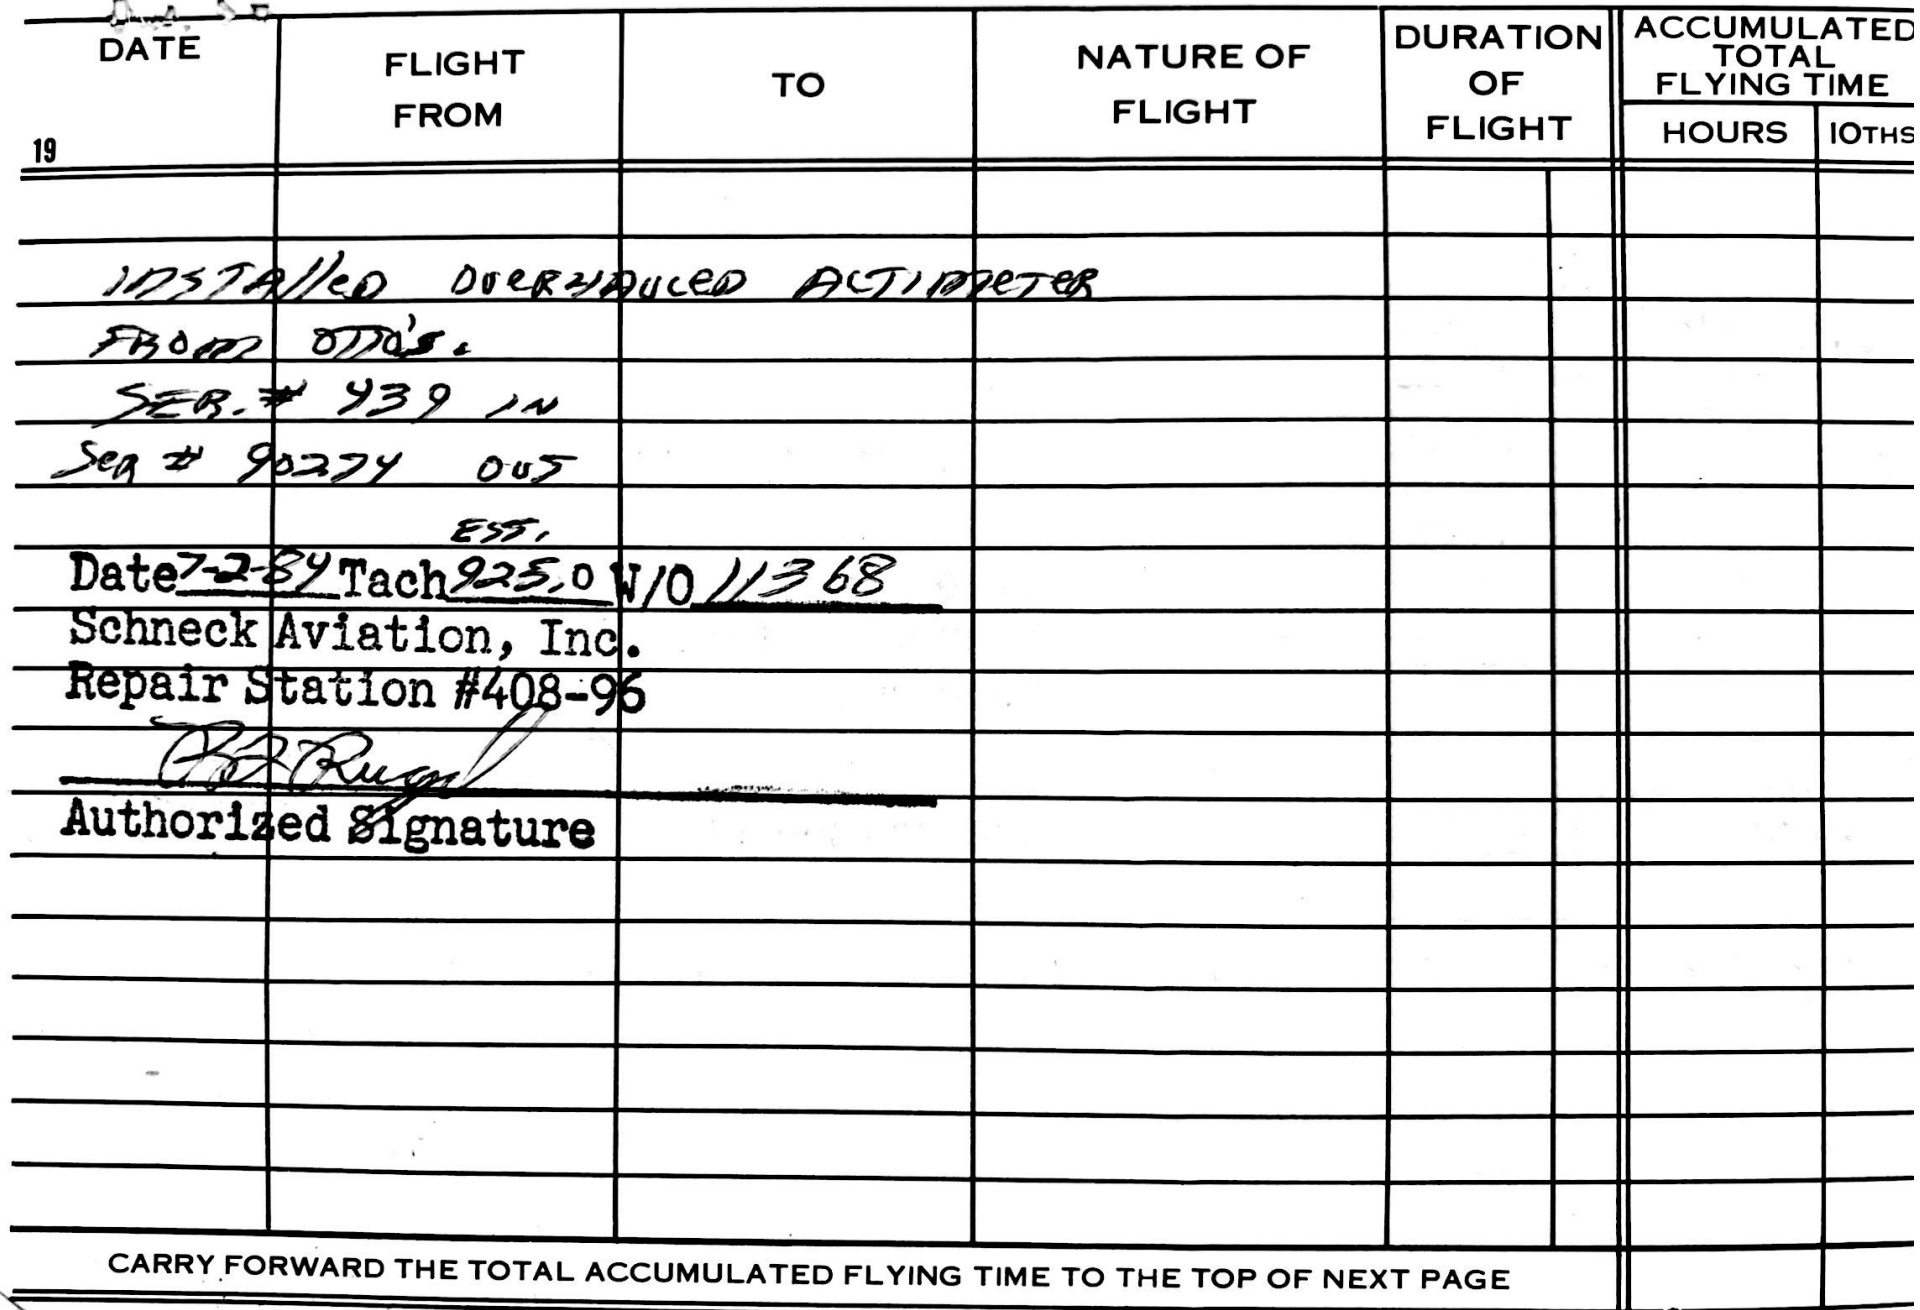 DATE
FLIGHT
FROM
TO
NATURE OF
FLIGHT
DURATION
OF
FLIGHT
ACCUMULATED
TOTAL
FLYING TIME
HOURS
10THS
19
INSTAllED OVERHAULED ALTIMETER
FROM OTTO'S.
SER. # 439 IN
Ser # 90274 OUT
EST.
Date 7-2-84 Tach 925.0 W/O 11368
Schneck Aviation, Inc.
Repair Station #408-96
Authorized Signature
CARRY FORWARD THE TOTAL ACCUMULATED FLYING TIME TO THE TOP OF NEXT PAGE